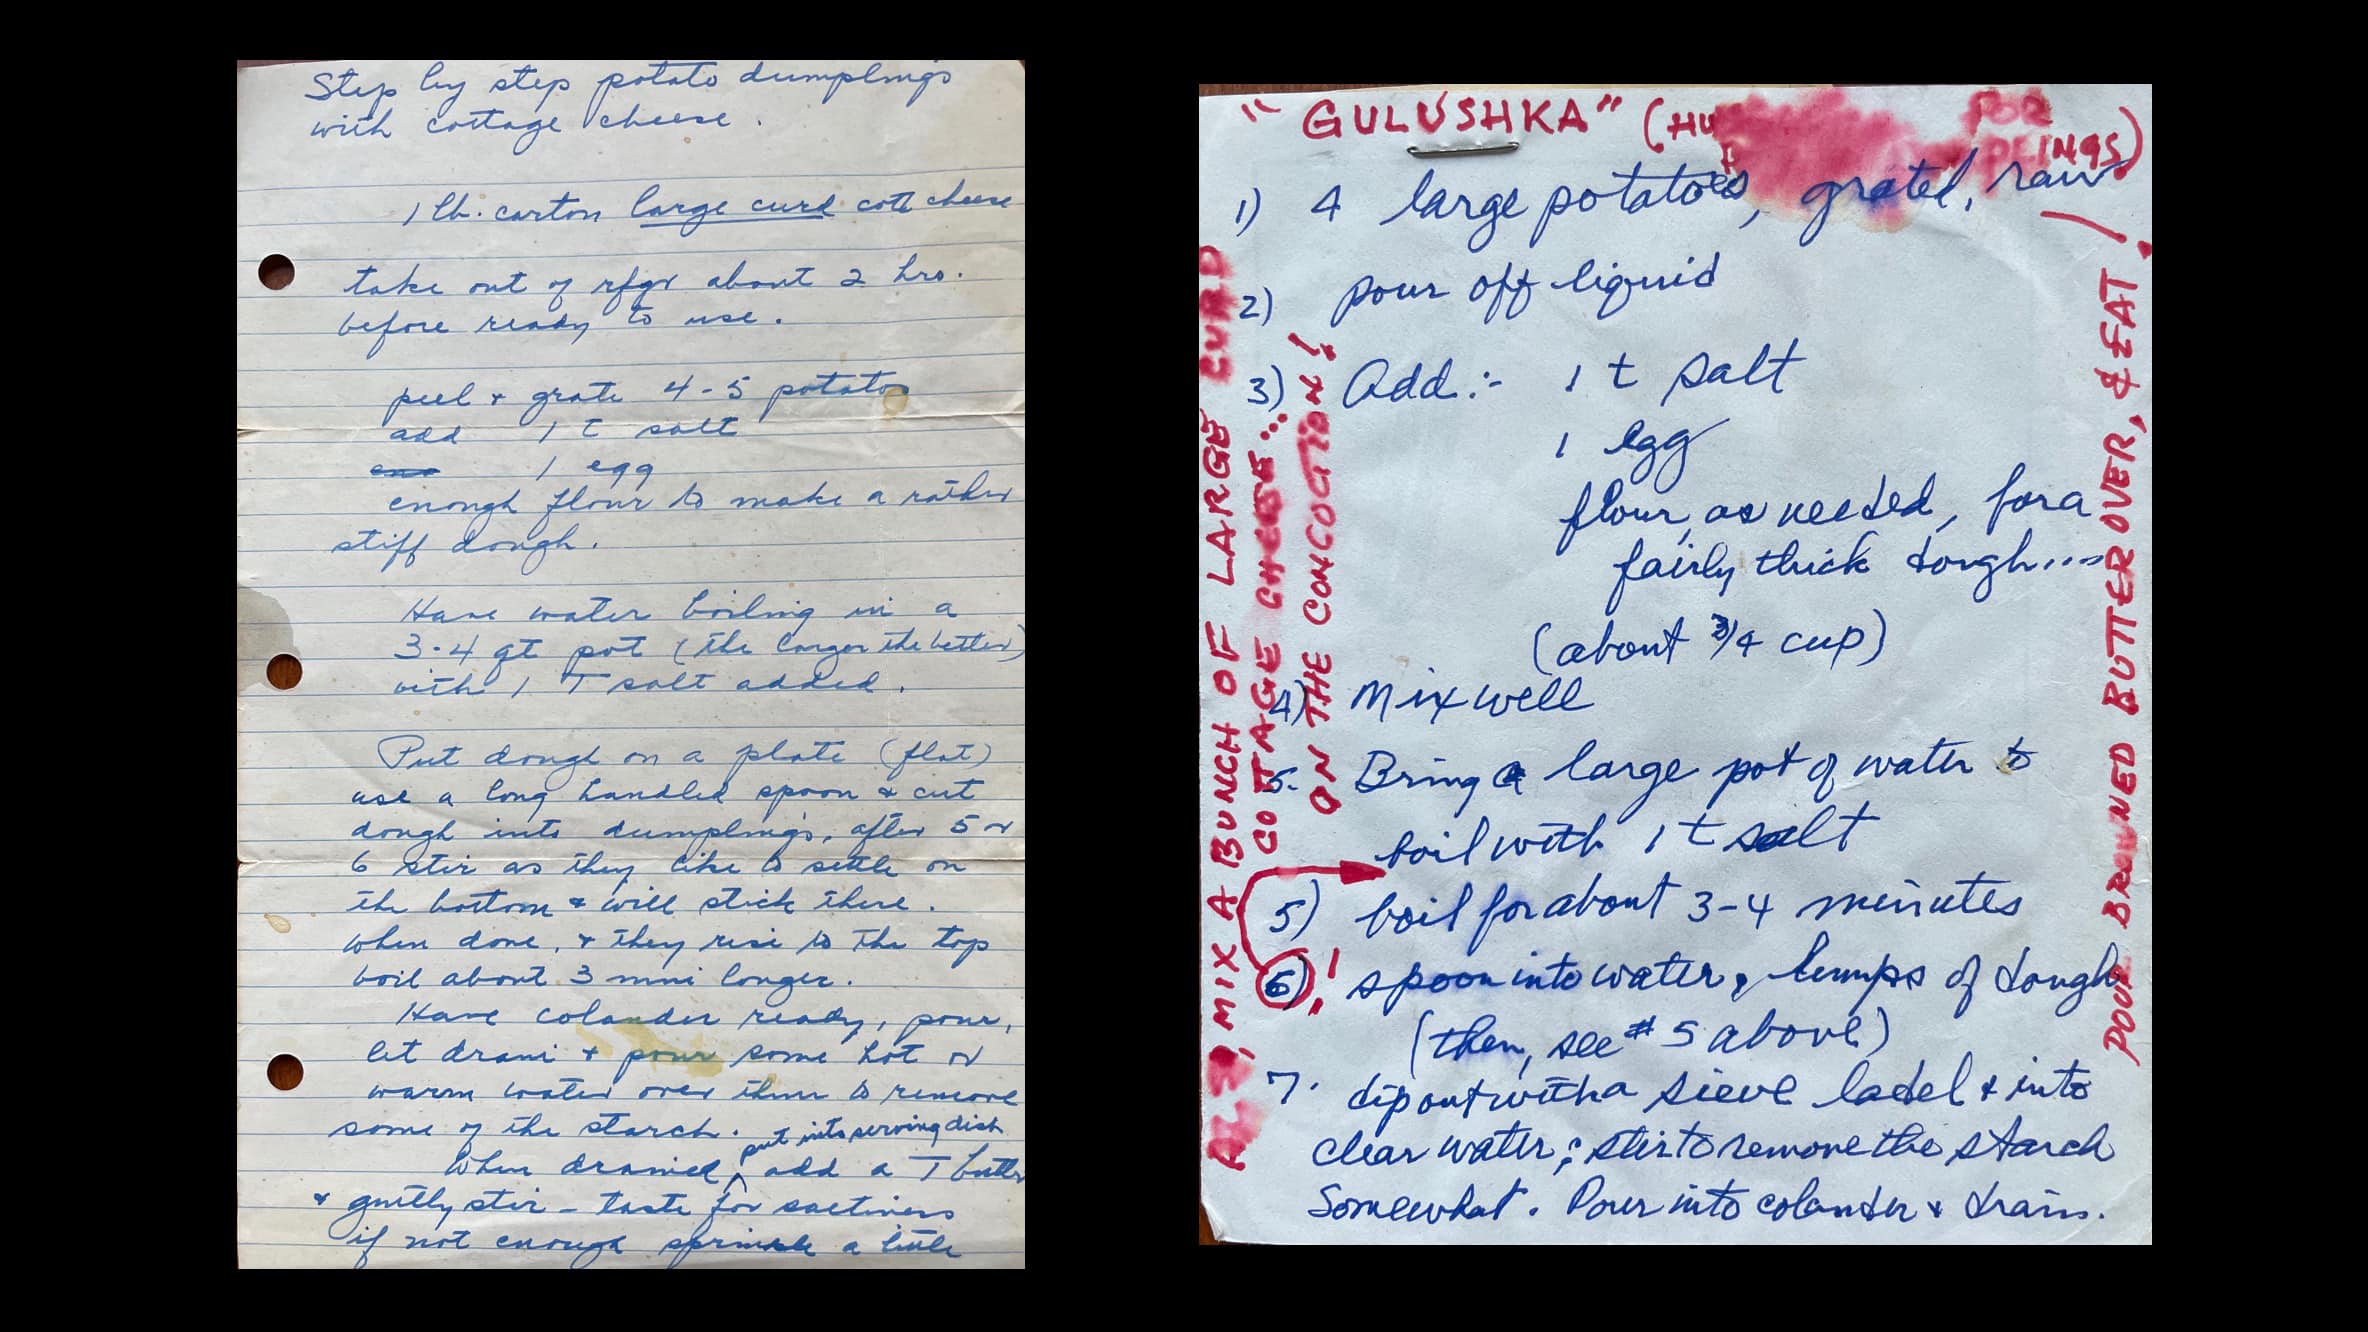 Step by step potato dumplings
with cottage cheese.
1 lb. carton large curd cott cheese
take out of rfgr about 2 hrs.
before ready to use.
peel + grate 4-5 potatos
add 1 t salt
1 egg
enough flour to make a rather
stiff dough.
Have water boiling in a
3-4 qt pot (the larger the better)
with 1 T salt added.
Put dough on a plate (flat)
use a long handled spoon & cut
dough into dumplings, after 5 or
6 stir as they like to settle on
the bottom & will stick there.
When done, & they rise to the top
boil about 3 min longer.
Have colander ready, pour,
let drain + pour some hot or
warm water over them to remove
some of the starch.
put into serving dish
When drained, add a T butter
& gently stir - taste for saltiness
if not enough sprinkle a little
"GULUSHKA" (HU FOR
INGS)
1) 4 large potatoes, grated, raw
2) pour off liquid
3) Add:- 1 t salt
1 egg
flour, as needed, for a
fairly thick dough....
(about 3/4 cup)
4) Mix well
5. Bring a large pot of water to
boil with 1 t salt
5) boil for about 3-4 minutes
6) ! spoon into water, lumps of dough
(then, see #5 above)
7. dip out with a sieve ladel & into
clear water; stir to remove the starch
somewhat. Pour into colander & drain.
ALSO, MIX A BUNCH OF LARGE CURD
COTTAGE CHEESE...
ON THE CONCOCTION!
POUR BROWNED BUTTER OVER, & EAT!